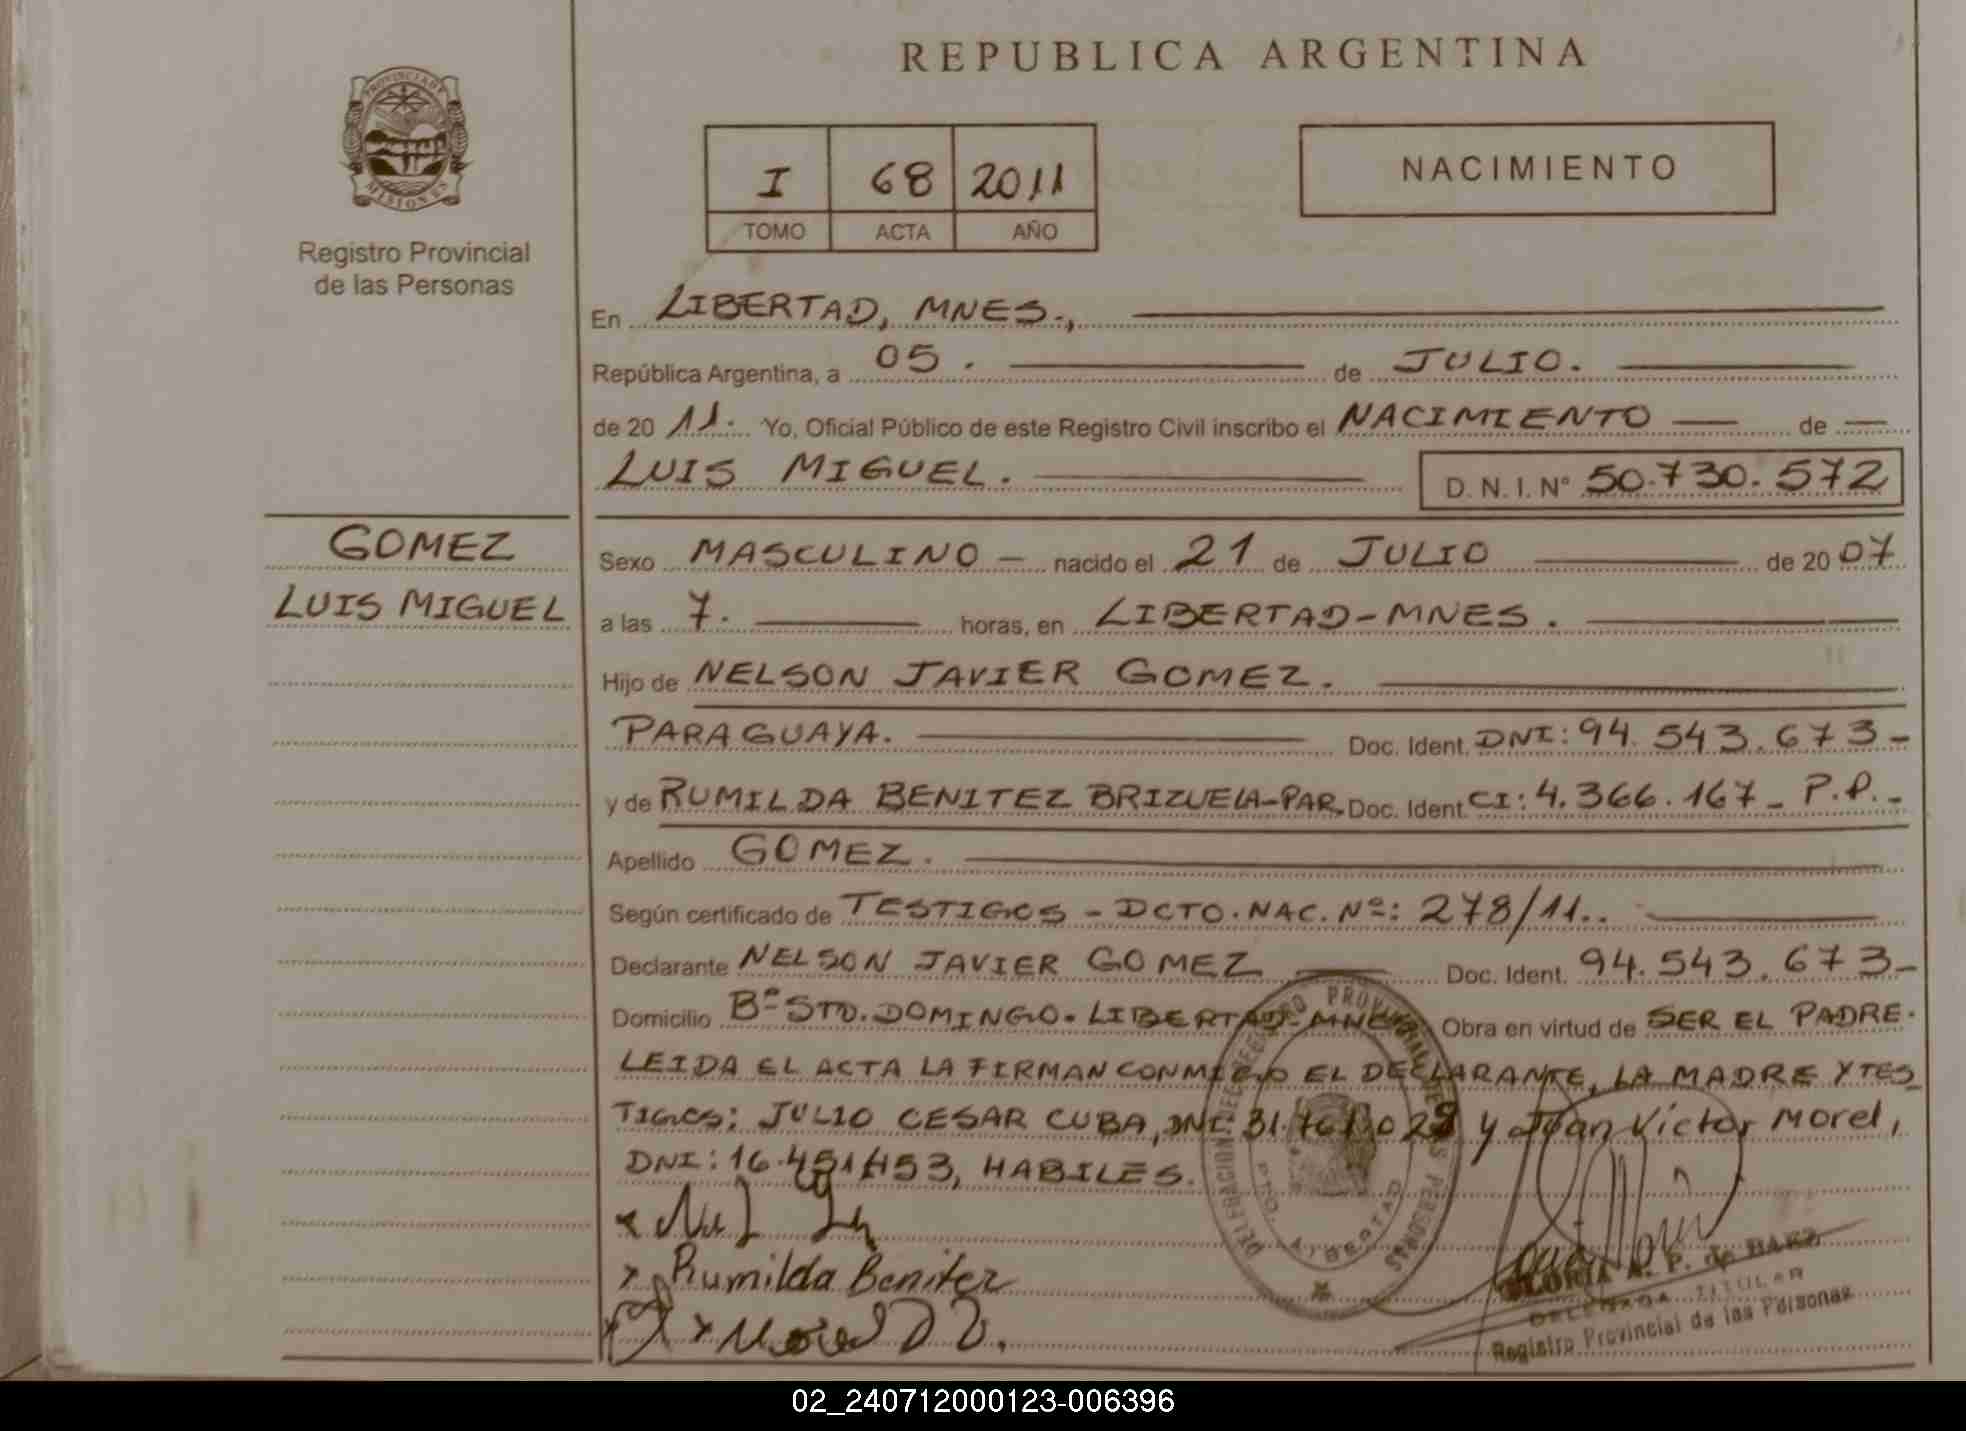 REPUBLICA ARGENTINA
PROVINCIA DE
MISIONES
Registro Provincial
de las Personas
I 68 2011
TOMO ACTA AÑO
NACIMIENTO
En LIBERTAD, MNES.,
República Argentina, a 05. de JULIO.
de 20 11. Yo, Oficial Público de este Registro Civil inscribo el NACIMIENTO de
LUIS MIGUEL. D. N. I. N° 50.730.572
GOMEZ
LUIS MIGUEL
Sexo MASCULINO - nacido el 21 de JULIO de 20 07
a las 7. horas, en LIBERTAD-MNES.
Hijo de NELSON JAVIER GOMEZ.
PARAGUAYA. Doc. Ident. DNI: 94.543.673-
y de RUMILDA BENITEZ BRIZUELA-PAR. Doc. Ident. CI: 4.366.167- P.P.-
Apellido GOMEZ.
Según certificado de TESTIGOS - DCTO. NAC. Nº: 278/11..
Declarante NELSON JAVIER GOMEZ Doc. Ident. 94.543.673-
Domicilio Bº STO. DOMINGO. LIBERTAD-MNES Obra en virtud de SER EL PADRE.
LEIDA EL ACTA LA FIRMAN CONMIGO EL DECLARANTE, LA MADRE Y TES
TIGOS: JULIO CESAR CUBA, DNI: 31.761.028 y Juan Victor Morel,
DNI: 16.451.453, HABILES.
x
x Rumilda Benitez
x Morel
DELEGACION DE REGISTRO PROVINCIAL DE LAS PERSONAS
PTO. LIBERTAD
GLORIA A. P. de BAEZ
DELEGADA TITULAR
Registro Provincial de las Personas
02_240712000123-006396